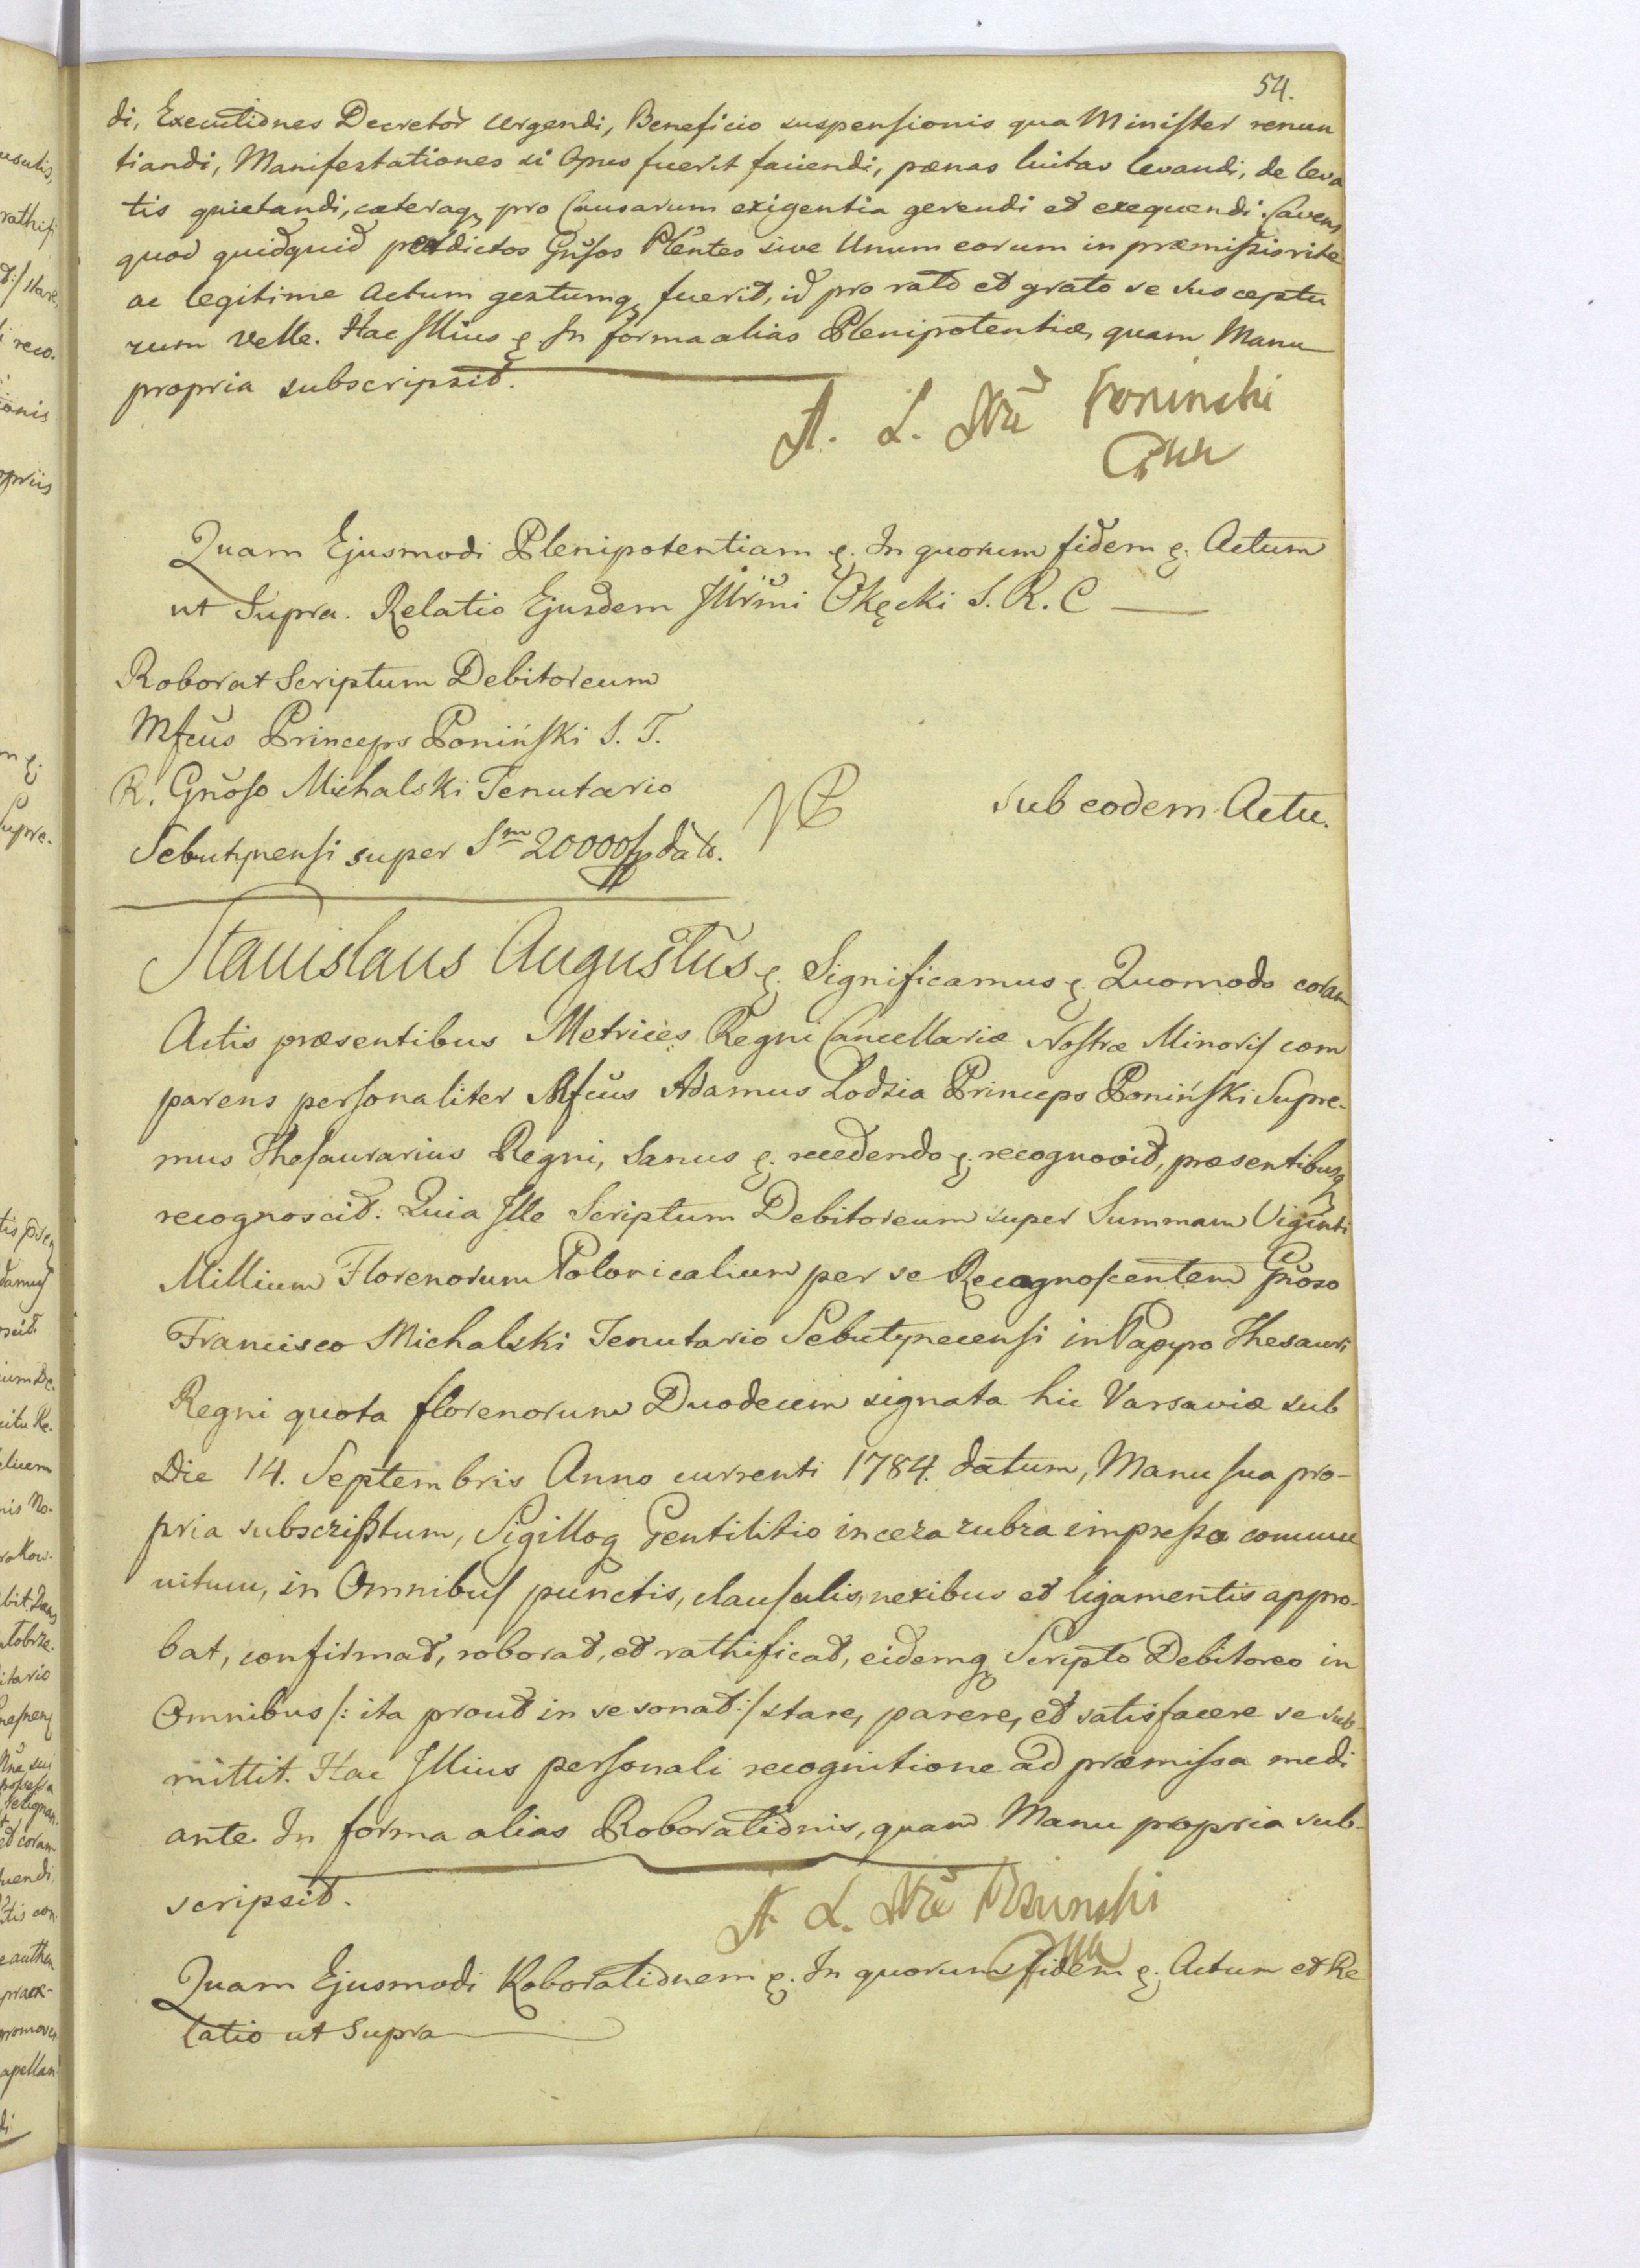 54.
di, Executiones Decretor̃ urgendi, Beneficio suspensionis qua Minister renun
tiandi, Manifestationes si Opus fuerit faciendi, pænas luitas levandi, de leva
tis quietandi, cæteraq, pro Causarum exigentia gerendi et exequendi. Cavens
quod quidquid prædictos Gn̈sos Pl̈entes sive Unum eorum in præmissis rite
ac legitime Actum gestumq, fuerit, id pro rato et grato se suscepturum
rum velle. Hac Illius &. In forma alias Plenipotentiæ, quam Manu
propria subscripsit.
A. L. Poninski
Quam Ejusmodi Plenipotentiam &. In quorum fidem &. Actum
ut Supra. Relatio Ejusdem Illr̃mi Okęcki S. R. C
Roborat Scriptum Debitoreum
Mfcũs Princeps Poniński S. T.
R. Gnõso Michalski Tenutario
Sebutynensi super Sm 20000 fp dat̃o.
sub eodem Actu.
Stanislaus Augustus &. Significamus &. Quomodo coram
Actis præsentibus Metrices Regni Cancellariæ Nostræ Minoris com
parens personaliter Mfcũs Adamus Lodzia Princeps Poniński Supre-
mus Thesaurarius Regni, sanus &. recedendo &. recognovit, præsentibusq,
recognoscit: Quia Ille Scriptum Debitoreum super Summam Viginti
Millium Florenorum Polonicalium per se Recognoscentem Gnõso
Francisco Michalski Tenutario Sebutynecensi in Papyro Thesauri
Regni quota florenorum Duodecim signata hic Varsaviæ sub
Die 14. Septembris Anno currenti 1784. datum, Manu sua pro-
pria subscriptum, Sigilloq Gentilitio in cera rubra impresso commu
nitum, in Omnibus punctis, clausulis, nexibus et ligamentis appro-
bat, confirmat, roborat, et rathificat, eidemq, Scripto Debitoreo in
Omnibus /: ita prout in se sonat :/ stare, parere, et satisfacere se sub-
mittit. Hac Illius personali recognitione ad præmissa medi
ante. In forma alias Roborationis, quam Manu propria sub-
scripsit.
A. L. Poninski
Quam Ejusmodi Roborationem &. In quorum fidem &. Actum et Re
latio ut Supra